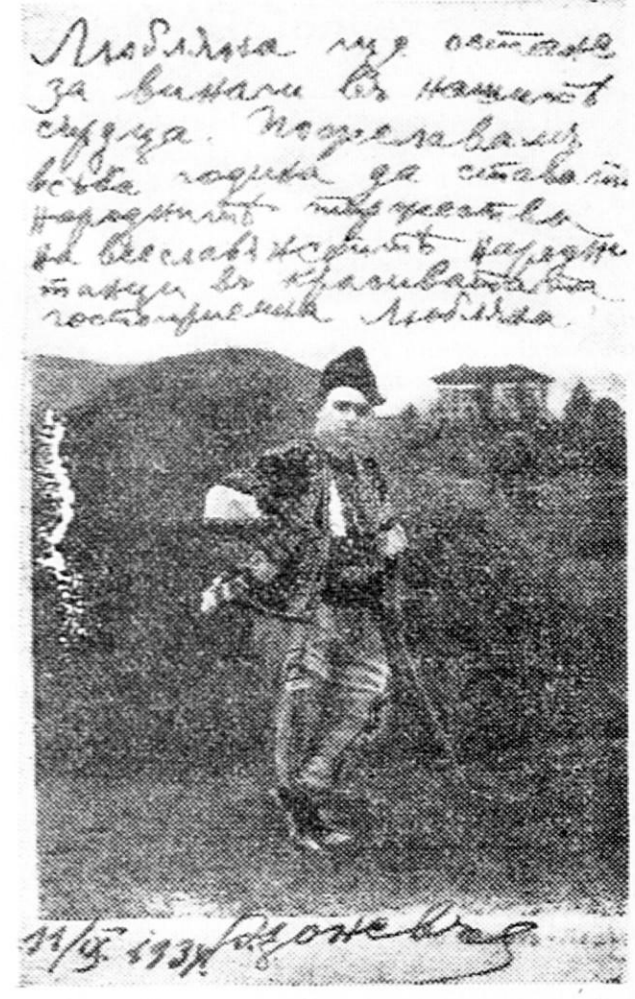 Любляна ще остане
за винаги въ нашитѣ
сърдца. Пожелавамъ
всѣка година да ставатъ
народнитѣ тържества
на всеславянскитѣ народни
танци въ красивата и
гостоприемна Любляна
11/IX 1934